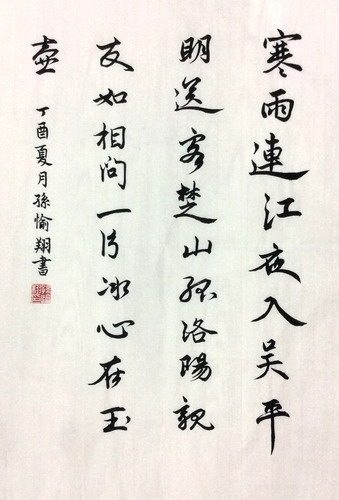 寒雨連江夜入吴平
明送客楚山孤洛陽親
友如相問一片冰心在玉
壺
丁酉夏月孫愉翔書